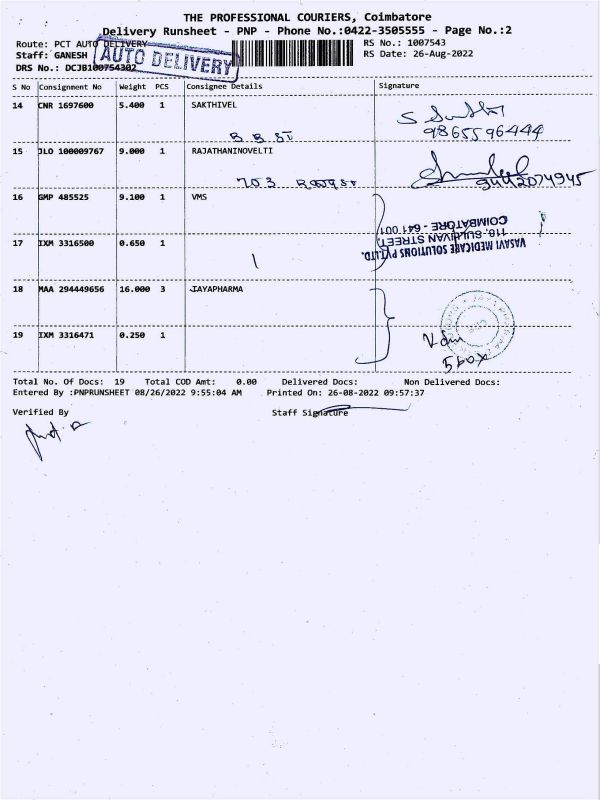 THE PROFESSIONAL COURIERS, Coimbatore
Delivery Runsheet - PNP - Phone No.:0422-3505555 - Page No.:2
Route: PCT AUTO DELIVERY
RS No.: 1007543
Staff: GANESH
RS Date: 26-Aug-2022
DRS No.: DCJB100754302
AUTO DELIVERY
S No Consignment No Weight PCS Consignee Details Signature
14 CNR 1697600 5.400 1 SAKTHIVEL
9865596444
15 JLO 100009767 9.000 1 RAJATHANINOVELTI
703
9442074945
16 GMP 485525 9.100 1 VMS
17 IXM 3316500 0.650 1
VASAVI MEDICARE SOLUTIONS PVT.LTD.
116, SULLIVAN STREET,
COIMBATORE - 641 001
18 MAA 294449656 16.000 3 JAYAPHARMA
19 IXM 3316471 0.250 1
Total No. Of Docs: 19 Total COD Amt: 0.00 Delivered Docs: Non Delivered Docs:
Entered By :PNPRUNSHEET 08/26/2022 9:55:04 AM Printed On: 26-08-2022 09:57:37
Verified By Staff Signature